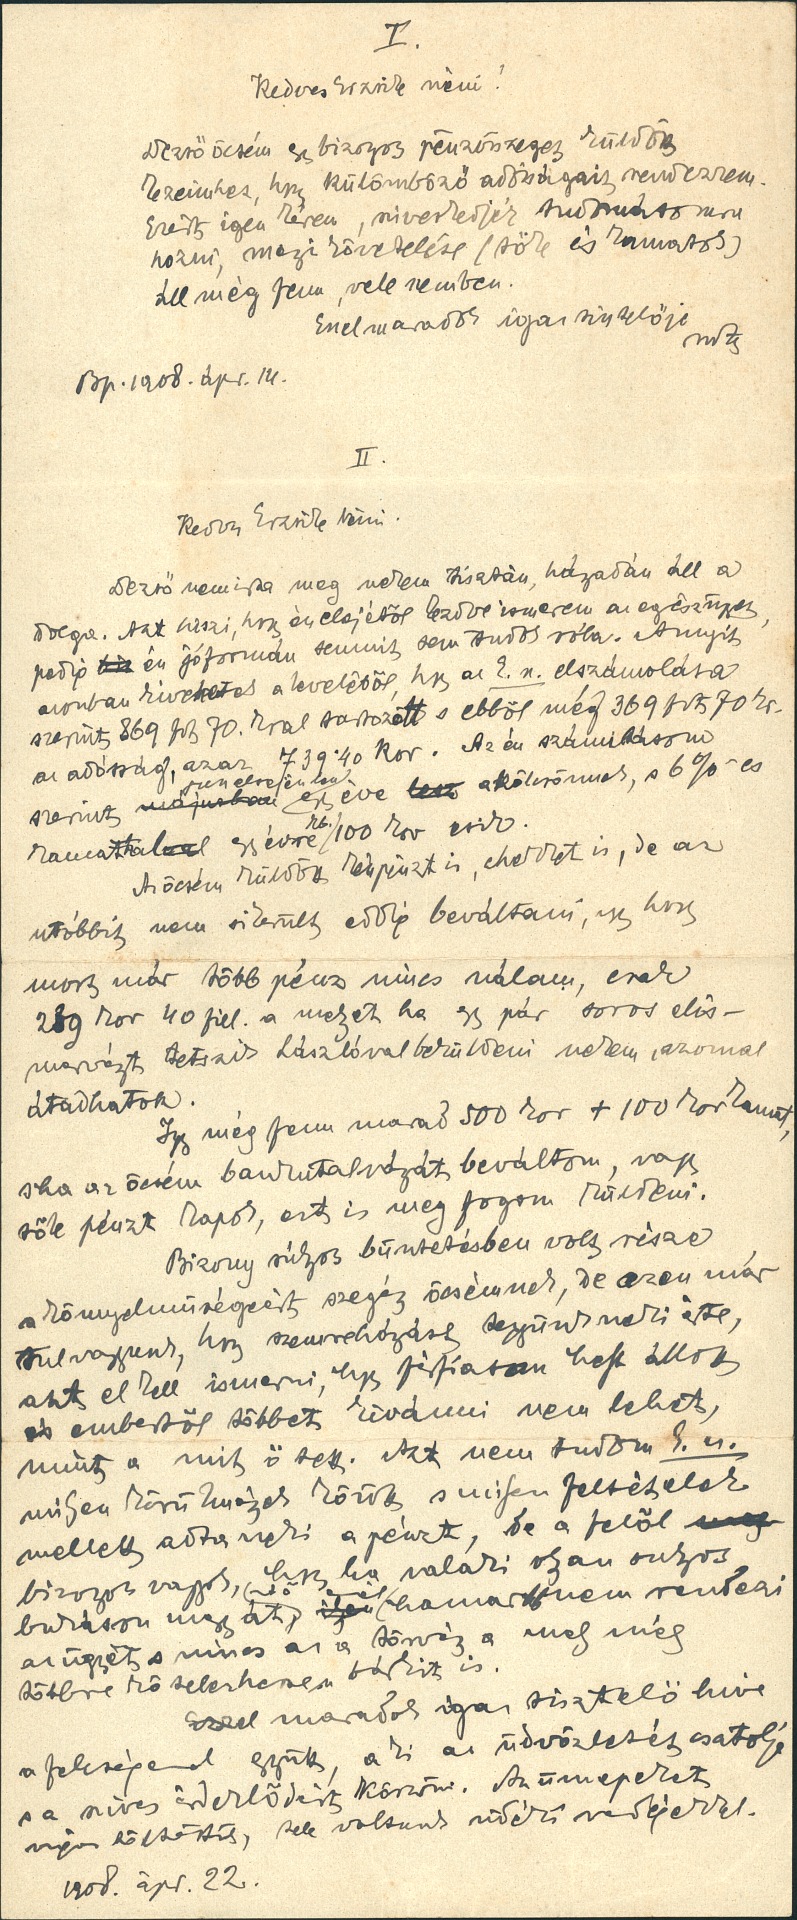 I.
Kedves Erzsike néni!
Dezső öcsém egy bizonyos pénzösszeget küldött
kezeimhez, hogy külömböző adósságait rendezzem.
Ezért igen kérem, sziveskedjék tudomásomra
hozni, mezi követelése (tőke és kamatok)
áll még fenn, vele szemben.
Ezzel maradok igaz tisztelője
Bp. 1908. ápr. 14.
II.
Kedves Erzsike néni.
Dezső nem irta meg nekem tisztán, hányadán áll a
dolga. Azt hiszi, hogy én elejétől kezdve ismerem az egész ügyet,
pedig én jóformán semmit sem tudok róla. Annyit
azonban kivehetek a leveléből, hogy az E. n. elszámolása
szerint 869 frt 70. kral tartozott s ebből még 369 frt 70 kr.
az adósság, azaz 739.40 Kor. Az én számitásom
szerint egy éve a kölcsönnek, s 6%-os
kamattal egy évre kb. 100 kor esik.
Az öcsém küldött készpénzt is, chekket is, de az
utóbbit nem sikerült eddig beváltani, ugy hogy
most már több pénz nincs nálam, csak
239 kor 40 fill. a melyet ha egy pár soros elis-
mervényt tetszik Lászlóval beküldeni nekem, azonnal
átadhatok.
Igy még fenn marad 500 kor + 100 kor kamat,
s ha az öcsém bankutalványát beváltom, vagy
tőle pénzt kapok, ezt is meg fogom küldeni.
Bizony sulyos büntetésben volt része
a könnyelmüségeért szegény öcsémnek, de ezen már
tul vagyunk, hogy szemrehányást tegyünk neki érte,
azt el kell ismerni, hogy férfiasan helyt állott
és embertől többet kivánni nem lehet,
mint a mit ő tett. Azt nem tudom E. n.
milyen körülmények között s milyen feltételek
mellett adta neki a pénzt, de a felől
bizonyos vagyok, hogy ha valaki olyan sulyos
bukáson megy át, hamar nem rendezi
az ügyét s nincs az a törvény a mely még
többre kötelezhessen bárkit is.
Ezzel maradok igaz tisztelő hive
a feleségemmel együtt, a ki az üdvözletét csatolja
s a szives érdeklődését köszöni. Az ünnepeket
vigan töltöttük, tele voltunk vidéki vendégekkel.
1908. ápr. 22.